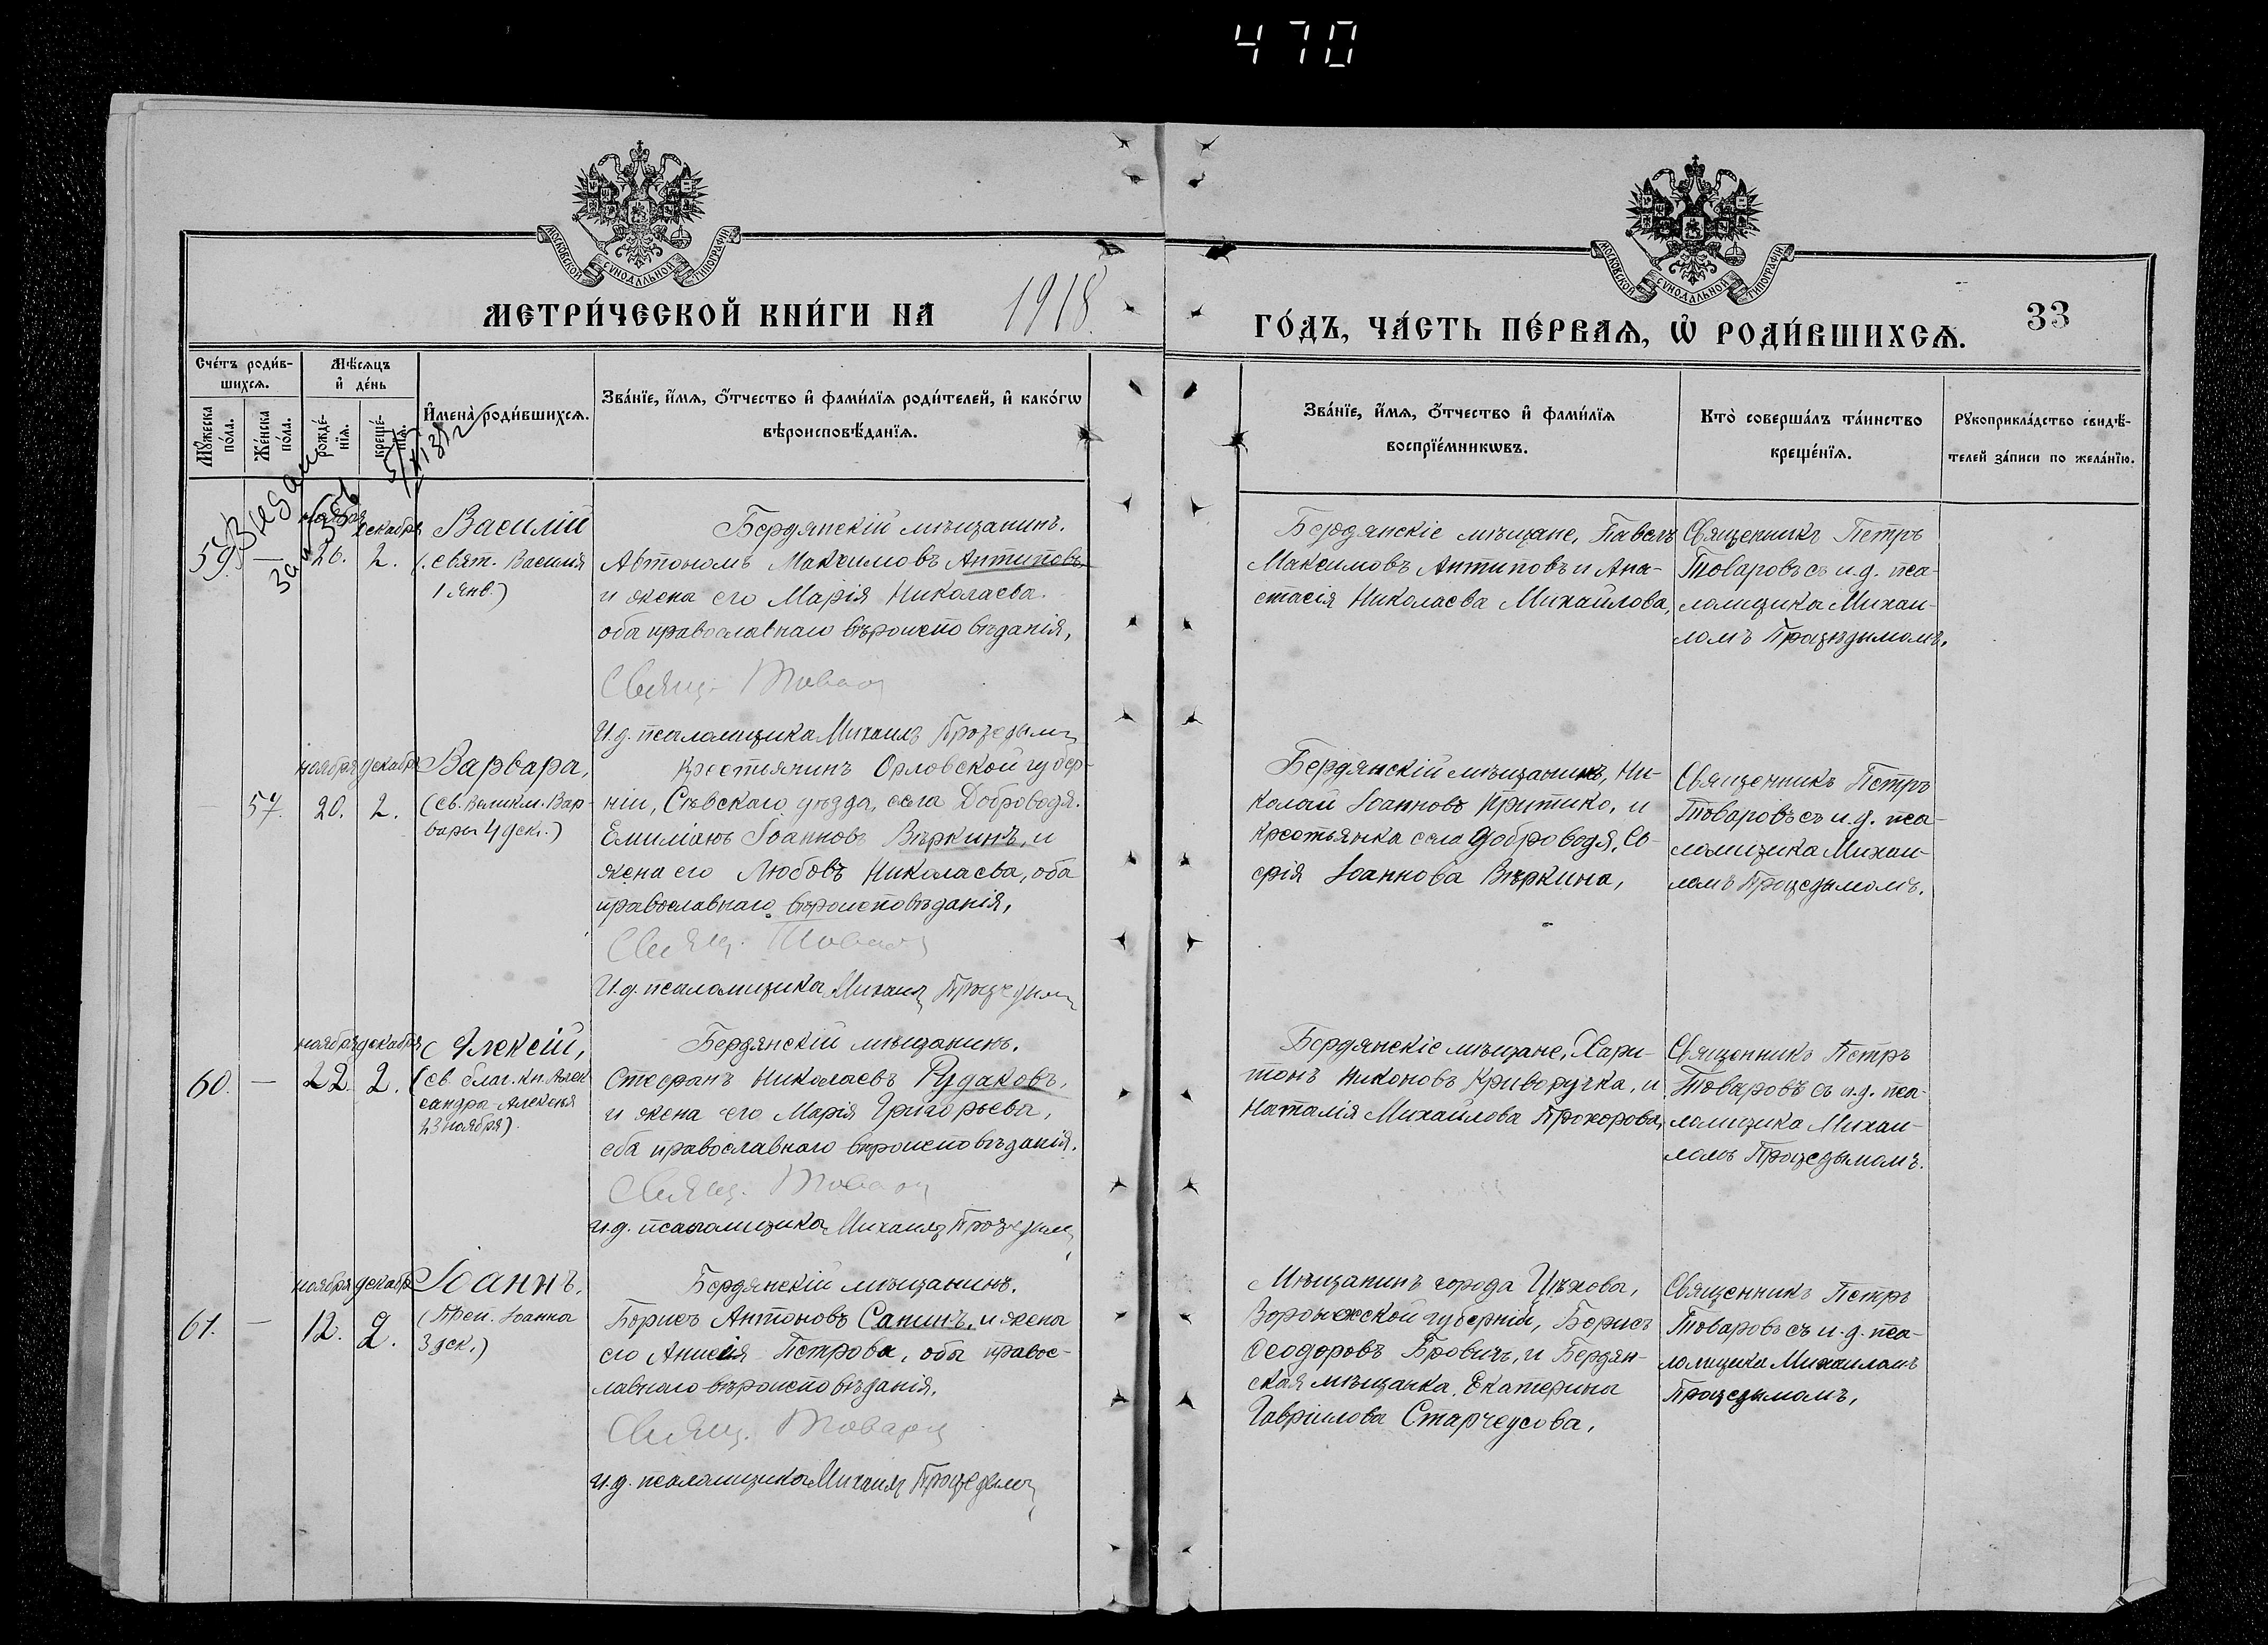 470
МОСКОВСКОЙ СѴНОДАЛЬНОЙ ТИПОГРАФІИ
МОСКОВСКОЙ СѴНОДАЛЬНОЙ ТИПОГРАФІИ
МЕТРИ́ЧЕСКОЙ КНИ́ГИ НА 1918.
ГО́ДЪ, ЧА́СТЬ ПЕ́РВАѦ, Ѡ҆ РОДИ́ВШИХСѦ.
33
Сче́тъ роди́в-
шихсѧ.
Мꙋ́жеска
по́ла.
Же́нска
по́ла.
Мѣ́сѧцъ
и҆ де́нь
рожде́-
нїѧ.
креще́-
нїѧ.
И҆мена̀ роди́вшихсѧ.
Зва́нїе, и҆́мѧ, ѻ҆́тчество и҆ фами́лїѧ роди́телей, и҆ како́гѡ
вѣроисповѣ́данїѧ.
Зва́нїе, и҆́мѧ, ѻ҆́тчество и҆ фами́лїѧ
воспрїе́мникѡвъ.
Кто̀ соверша́лъ та́инство
креще́нїѧ.
Рꙋкоприкла́дство свидѣ́-
телей за́писи по жела́нїю.
59. — ноября 26. декабря 2.
Василій
(свят. Василія
1 янв.)
Бердянскій мѣщанинъ.
Автономъ Максимовъ Антиповъ,
и жена его Марія Николаева.
оба православнаго вѣроисповѣданія,
Свящ. Товаров
И.д. псаломщика Михаилъ
Бердянскіе мѣщане, Павелъ
Максимовъ Антиповъ и Ана-
стасія Николаева Михайлова,
Священникъ Петръ
Товаровъ съ и.д. пса-
ломщика Михаи-
ломъ
— 57. ноября 20. декабря 2.
Варвара,
(св. Великм. Вар-
вары 4 дек.)
Крестьянинъ Орловской губер-
ніи, Сѣвскаго уѣзда, села Доброводя.
Емиліанъ Іоанновъ Вѣркинъ, и
жена его Любовь Николаева, оба
православнаго вѣроисповѣданія,
Свящ. Товаров
И.д. псаломщика Михаилъ
Бердянскій мѣщанинъ, Ни-
колай Іоанновъ Критико, и
крестьянка села Доброводя, Со-
фія Іоаннова Вѣркина,
Священникъ Петръ
Товаровъ съ и.д. пса-
ломщика Михаи-
ломъ
60. — ноября 22. декабря 2.
Алексій,
(св. благ. кн. Алек
сандра-Алексія
23 ноября).
Бердянскій мѣщанинъ.
Стефанъ Николаевъ Рудаковъ,
и жена его Марія Григорьева,
оба православнаго вѣроисповѣданія.
Свящ. Товаров
И.д. псаломщика Михаилъ
Бердянскіе мѣщане, Хари-
тонъ Никоновъ Криворучка, и
Наталія Михайлова Прохорова,
Священникъ Петръ
Товаровъ съ и.д. пса-
ломщика Михаи-
ломъ
61. — ноября 12. декабр 2.
Іоаннъ,
(Преп. Іоанна
3 дек.)
Бердянскій мѣщанинъ.
Борисъ Антоновъ Сапинъ, и жена
его Анисія Петрова, оба правос-
лавнаго вѣроисповѣданія.
Свящ. Товаров
И.д. псаломщика Михаилъ
Мѣщанинъ города
Воронежской губерніи, Борисъ
Ѳеодоровъ и Бердян-
ская мѣщанка, Екатерина
Гавріилова Старчеусова,
Священникъ Петръ
Товаровъ съ и.д. пса-
ломщика Михаиломъ